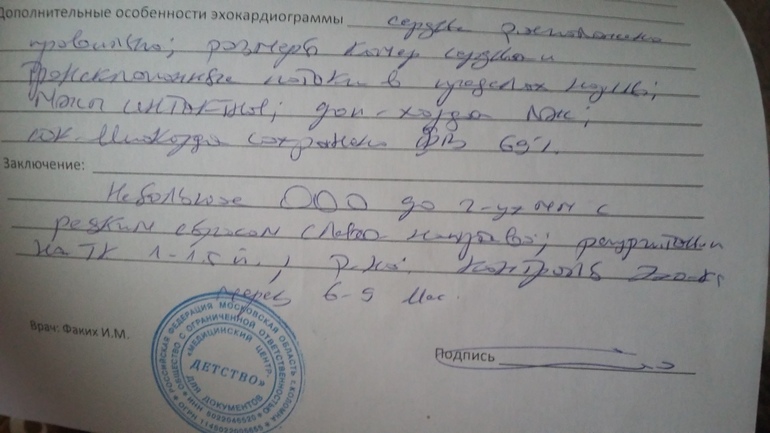 Дополнительные особенности эхокардиограммы сердце расположено
правильно; размеры камер сердца и
трансклапанные потоки в пределах нормы;
интактны; доп. хорда ЛЖ;
сохранена ФВ 69%.
Заключение:
Небольшое ООО до 2-ух мм с
редким сбросом слева направо; регургитация
на ТК 1-1,5 ; контроль
через 6-9 мес.
Врач: Факих И.М.
Подпись
РОССИЙСКАЯ ФЕДЕРАЦИЯ МОСКОВСКАЯ ОБЛАСТЬ г. КОЛОМНА
ОБЩЕСТВО С ОГРАНИЧЕННОЙ ОТВЕТСТВЕННОСТЬЮ
«МЕДИЦИНСКИЙ ЦЕНТР
ДЕТСТВО»
ДЛЯ ДОКУМЕНТОВ